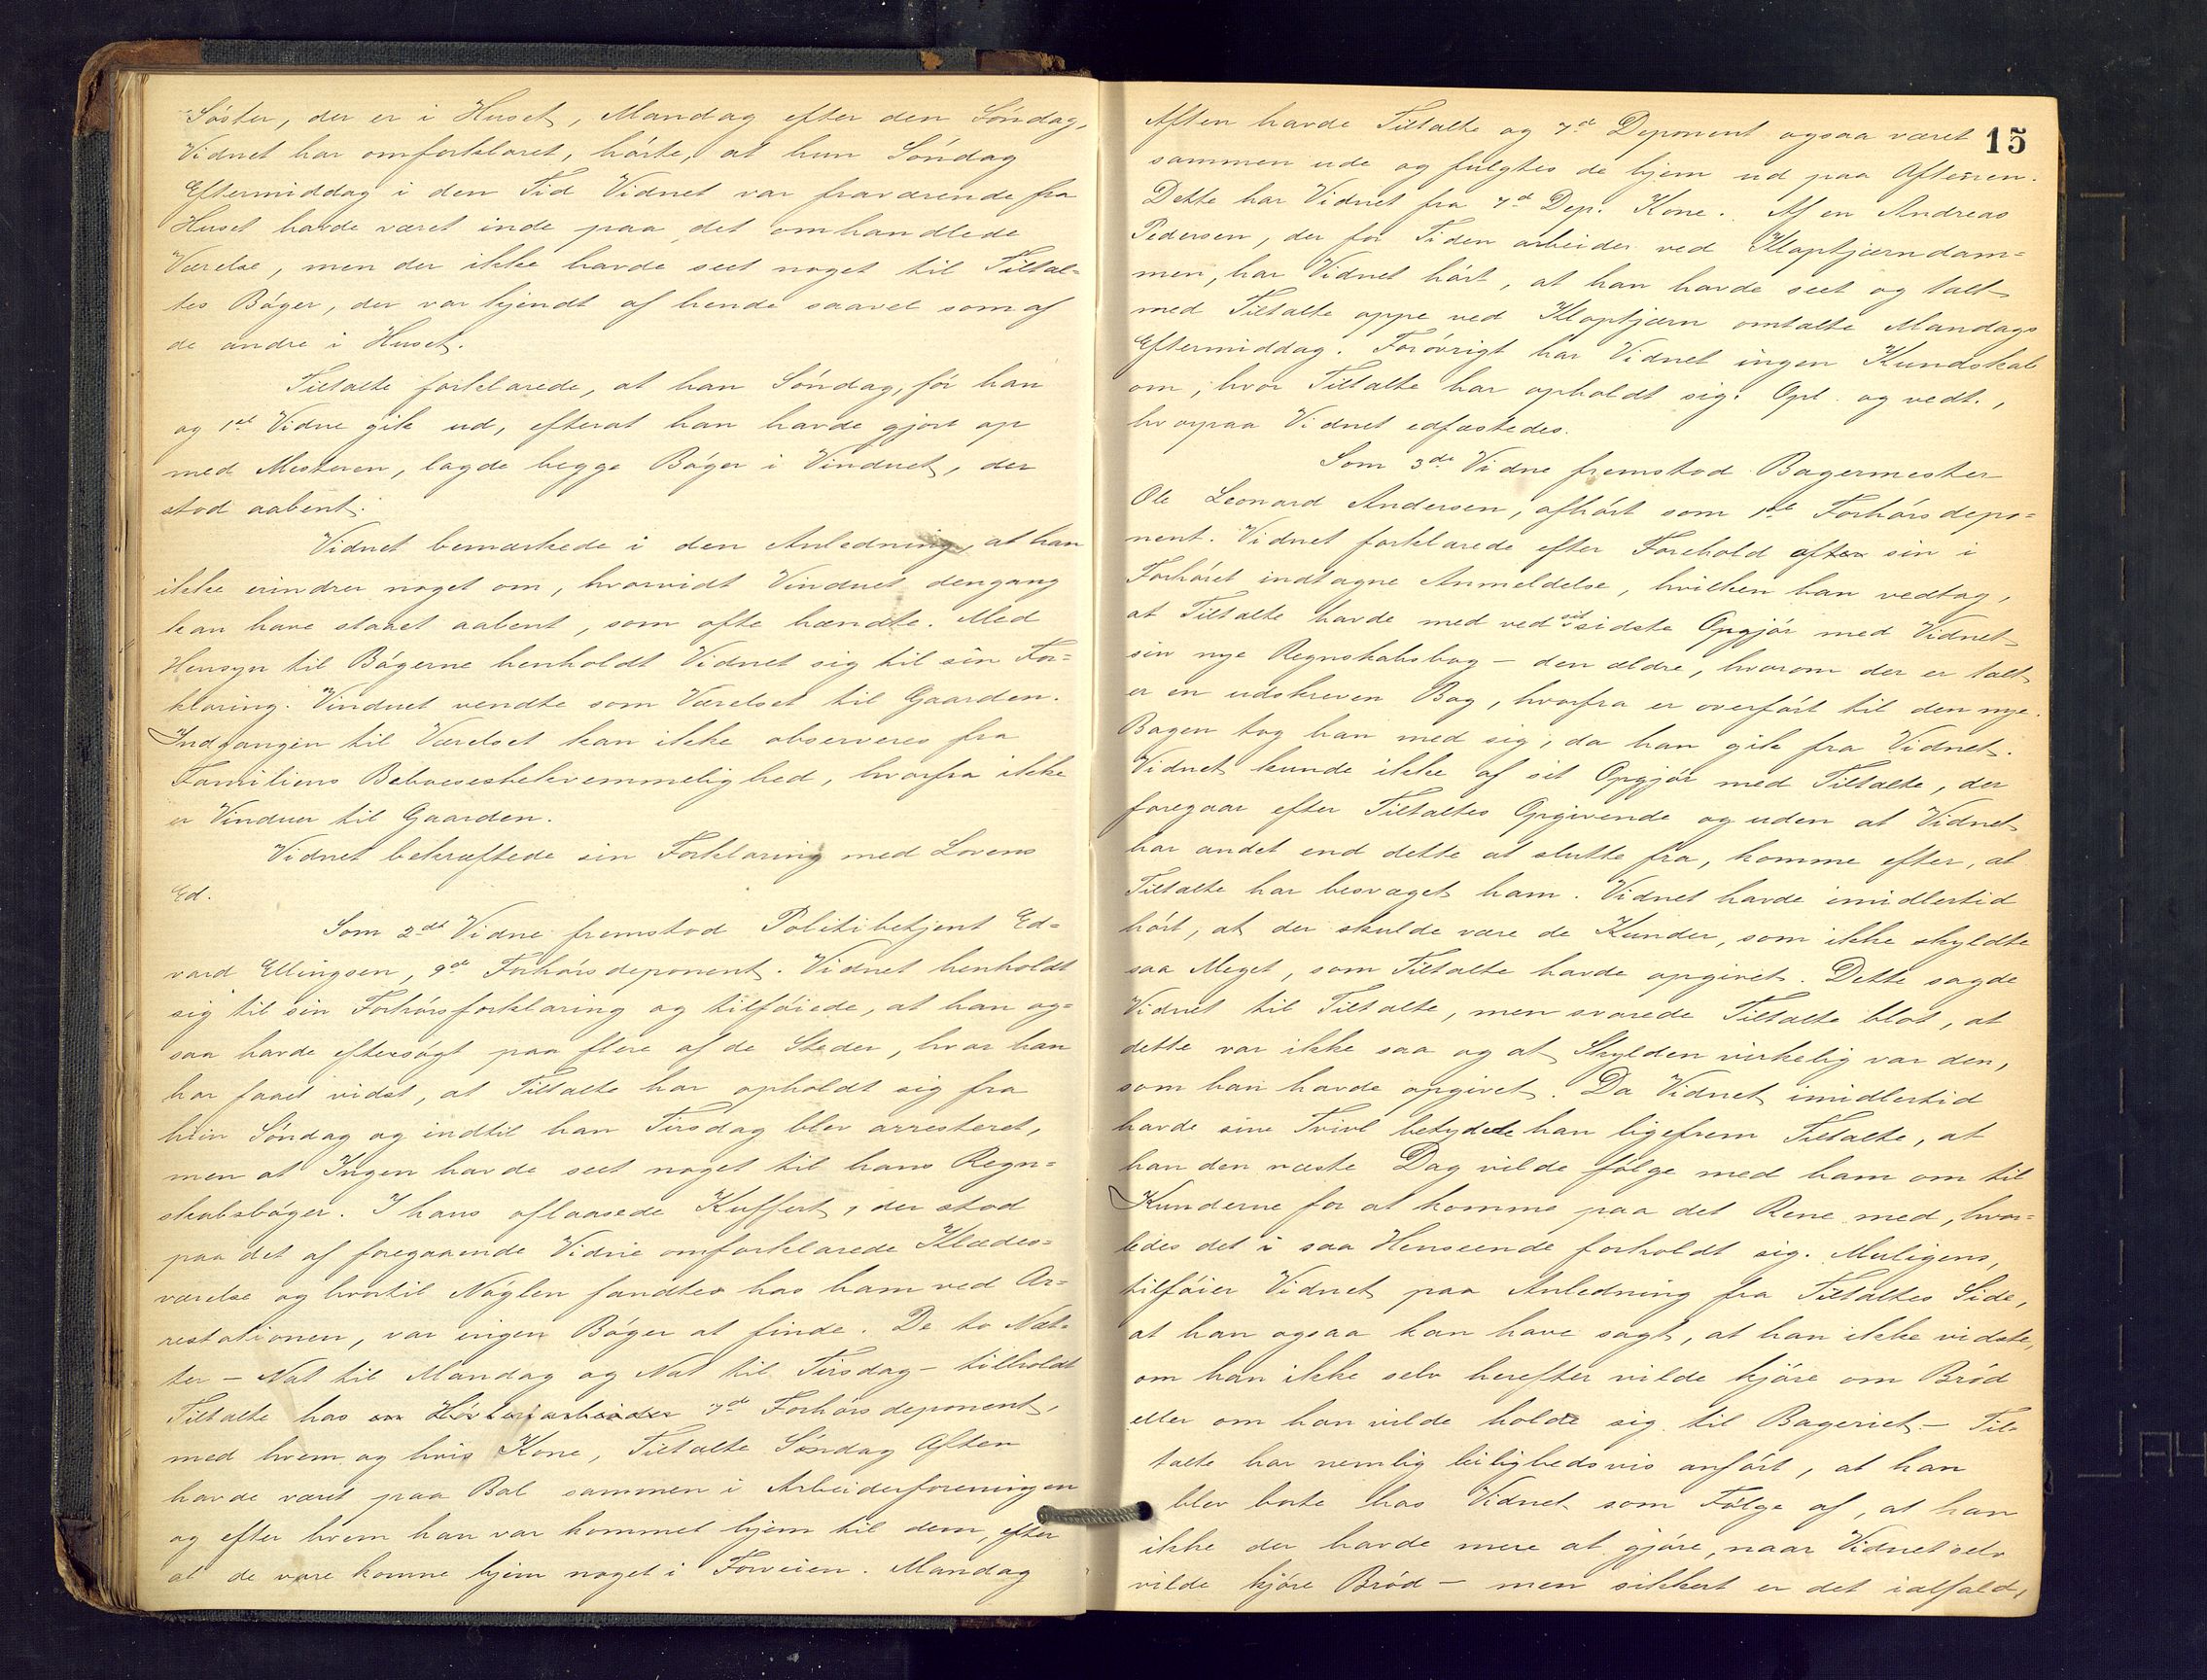 Søster, der er i Huset, Mandag efter den Søndag,
Vidnet har omforklaret, hørte, at hun Søndag
Eftermiddag i den Tid Vidnet var fraværende fra
Huset havde været inde paa det omhandlede
Værelse, men der ikke havde seet noget til Tiltal-
tes Bøger, der var kjendt af hende saavel som af
de andre i Huset.
Tiltalte forklarede, at han Søndag, før han
og 1ste Vidne gik ud, efterat han havde gjort op
med Mesteren, lagde begge Bøger i Vinduet, der
stod aabent.
Vidnet bemærkede i den Anledning, at han
ikke erindrer noget om, hvorvidt Vinduet dengang
kan have staaet aabent, som ofte hændte. Med
Hensyn til Bøgerne henholdt Vidnet sig til sin For-
klaring. Vinduet vendte som Værelset til Gaarden.
Indgangen til Værelset kan ikke observeres fra
Familiens Beboeseshekvemmelighed, hvorfra ikke
er Vinduer til Gaarden.
Vidnet bekræftede sin Forklaring med Lovens
Ed.
Som 2det Vidne fremstod Politibetjent Ed-
vard Ellingsen, 9de Forhørsdeponent. Vidnet henholdt
sig til sin Forhørsforklaring og tilføiede, at han og-
saa havde eftersøgt paa flere af de Steder, hvor han
har faaet vidst, at Tiltalte har opholdt sig fra
hiin Søndag og indtil han Tirsdag blev arresteret,
men at Ingen havde seet noget til hans Regn-
skabsbøger. I hans aflaasede Kuffert, der stod
paa det af foregaaende Vidne omforklarede Klædes-
værelse og hvortil Nøglen fandtes hos ham ved Ar-
restationen, var ingen Bøger at finde. De to Næt-
ter – Nat til Mandag og Nat til Tirsdag – tilholdt
Tiltalte hos en 7de Forhørsdeponent,
med hvem og hvis Kone, Tiltalte Søndag Aften
havde været paa Bal sammen i Arbeiderforeningen
og efter hvem han var kommet hjem til dem, efter
at de vare komne hjem noget i Forveien. Mandag
15
Aften havde Tiltalte og 7de Deponent ogsaa været
sammen ude og fulgtes de hjem ud paa Aftenen.
Dette har Vidnet fra 7de Dep. Kone. Af en Andreas
Pedersen, der for Tiden arbeider ved Kloptjærndam-
men, har Vidnet hørt, at han havde seet og talt
med Tiltalte oppe ved Kloptjærn omtalte Mandags
Eftermiddag. Forøvrigt har Vidnet ingen Kundskab
om, hvor Tiltalte har opholdt sig. Opl. og vedt.,
hvorpaa Vidnet edfæstedes.
Som 3die Vidne fremstod Bagermester
Ole Leonard Andersen, afhørt som 1ste Forhørsdepo-
nent. Vidnet forklarede efter Forehold after sin i
Forhøret indtagne Anmeldelse, hvilken han vedtog,
at Tiltalte havde med ved sit sidste Opgjør med Vidnet
sin nye Regnskabsbog – den ældre, hvorom der er talt
er en udskreven Bog, hvorfra er overført til den nye.
Bogen tog han med sig, da han gik fra Vidnet.
Vidnet kunde ikke af sit Opgjør med Tiltalte, der
foregaar efter Tiltaltes Opgivende og uden at Vidnet
har andet end dette at slutte fra, komme efter, at
Tiltalte har besveget ham. Vidnet havde imidlertid
hørt, at der skulde være de Kunder, som ikke skyldte
saa Meget, som Tiltalte havde opgivet. Dette sagde
Vidnet til Tiltalte, men svarede Tiltalte blot, at
dette var ikke saa og at Skylden virkelig var den,
som han havde opgivet. Da Vidnet imidlertid
havde sine Tvivl betydede han ligefrem Tiltalte, at
han den næste Dag vilde følge med ham om til
Kunderne for at komme paa det Rene med, hvor-
ledes det i saa Henseende forholdt sig. Muligens,
tilføier Vidnet paa Anledning fra Tiltaltes Side,
at han ogsaa kan have sagt, at han ikke vidste,
om han ikke selv herefter vilde kjøre om Brød
eller om han vilde holde sig til Bageriet – Til-
talte har nemlig leilighedsvis anført, at han
blev borte hos Vidnet som Følge af, at han
ikke der havde mere at gjøre, naar Vidnet selv
vilde kjøre Brød – men sikkert er det ialfald,